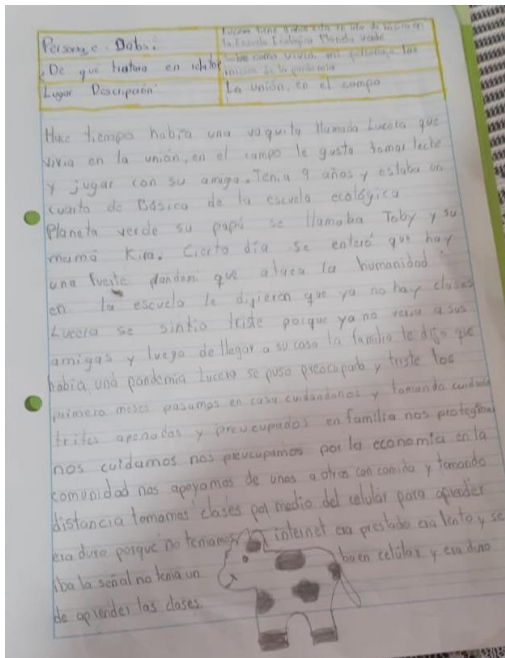 Personaje. Datos: Lucero tiene 9 años esta en 4to de básica en la Escuela Ecológica Planeta verde
De que tratara en relato Sobre como vivió mi personaje los inicios de la pandemia
Lugar Descripción: La unión, en el campo
Hace tiempos había una vaquita llamada Lucera que
vivia en la unión, en el campo le gusta tomar leche
y jugar con su amiga. Tenia 9 años y estaba en
cuarto de Básica de la escuela ecológica
Planeta verde su papá se llamaba Toby y su
mamá Kira. Cierto día se enteró que hay
una fuerte pandami que ataca la humanidad
en la escuela le dijieren que ya no hay clases
Lucera se sintio triste porque ya no veria a sus
amigas y luego de llegar a su casa la familia le dijo que
había una pandemia Lucera se puso preocupada y triste los
primero meses pasamos en casa cuidandonos y tomando
trites apenados y preucupados en familia nos protegimos
nos cuidamos nos preucupamos por la economia en la
comunidad nos apoyamos de unos a otros con comida y tomando
distancia tomamos clases por medio del celular para aprender
era duro porque no teniamos internet era prestado era lento y se
iba la señal no tenia un buen celular y era duro
de aprender las clases.